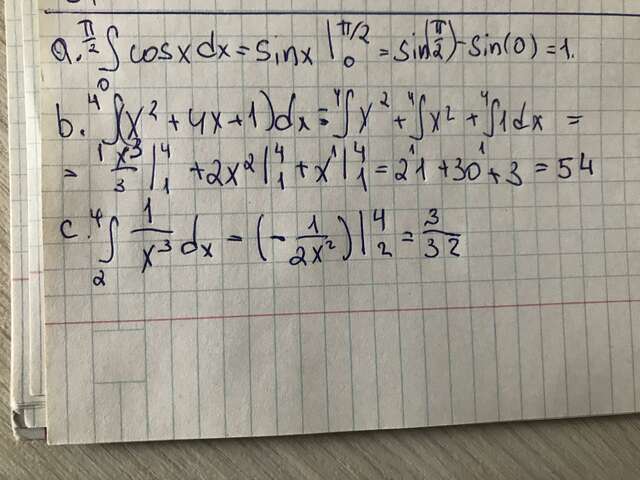 a. ∫₀^{π/2} cosx dx = sinx |₀^{π/2} = sin(π/2) - sin(0) = 1.
b. ∫₁⁴ (x² + 4x + 1) dx = ∫₁⁴ x² + ∫₁⁴ x² + ∫₁⁴ 1 dx =
= x³/3 |₁⁴ + 2x² |₁⁴ + x |₁⁴ = 21 + 30 + 3 = 54
c. ∫₂⁴ 1/x³ dx = (- 1/2x²) |₂⁴ = 3/32